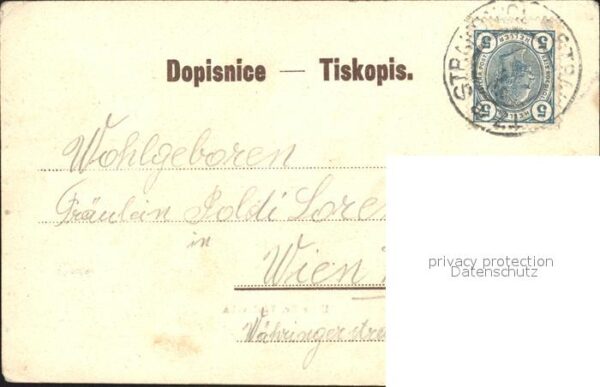 Dopisnice — Tiskopis.
5 5
HELLER
5 5
Wohlgeboren
Fräulein Poldi Lore
in
Wien
Währingerstra
privacy protection
Datenschutz